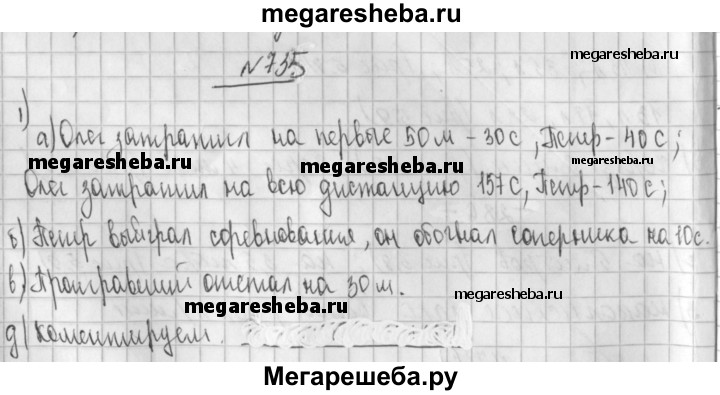 megaresheba.ru
№735
megaresheba.ru
1)
а) Олег затратил на первые 50 м – 30 с, Петр – 40 с;
megaresheba.ru megaresheba.ru megaresheba.ru
Олег затратил на всю дистанцию 157 с, Петр – 140 с;
б) Петр выйграл соревнования, он обогнал соперника на 10 с.
в) Проигравший отстал на 30 м.
megaresheba.ru megaresheba.ru
д) Коментируем.
Мегарешеба.ру